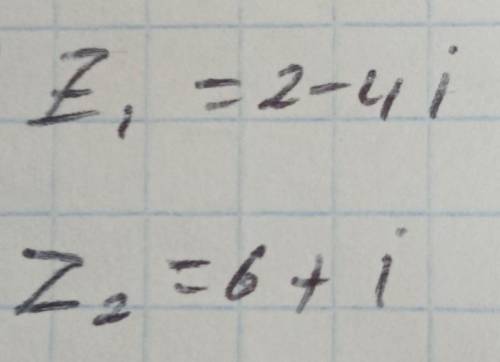 Z₁ = 2 - 4i
Z₂ = 6 + i